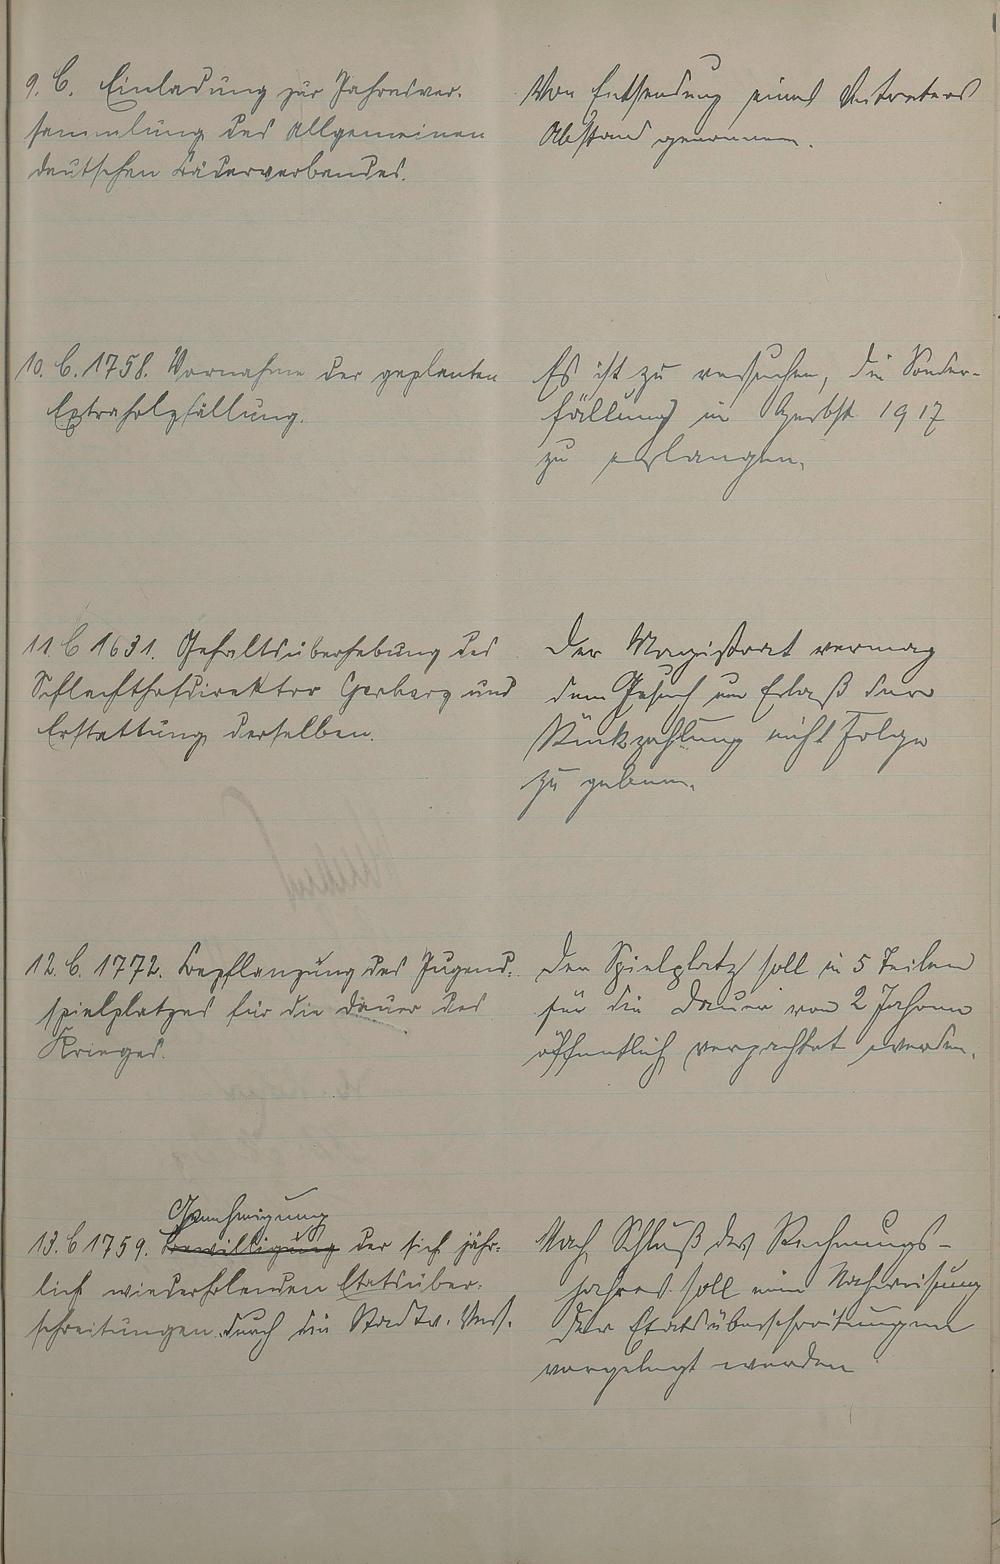 9. C. Einladung zur Jahresver-
sammlung des Allgemeinen
deutschen Bäderverbandes.
Von Entsendung eines Vertreters
Abstand genommen.
10. C. 1758. Vornahme der geplanten
Extraholzfällung.
Es ist zu versuchen, die Sonder-
fällung im Herbst 1917
zu erlangen.
11. C 1631. Gehaltsüberhebung des
Schlachthofdirektor Gerberg und
Erstattung derselben.
Der Magistrat vermag
dem Gesuch um Erlaß der
Rückzahlung nicht Folge
zu geben.
12. C. 1772. Bepflanzung des Jugend-
spielplatzes für die Dauer des
Krieges.
Der Spielplatz soll in 5 Teilen
für die Dauer von 2 Jahren
öffentlich verpachtet werden.
Genehmigung
13. C 1759. Bewilligung der sich jähr-
lich wiederholenden Etatsüber-
schreitungen durch die Stadtv. Vers.
Nach Schluß des Rechnungs-
jahres soll eine Nachweisung
der Etatsüberschreitungen
vorgelegt werden